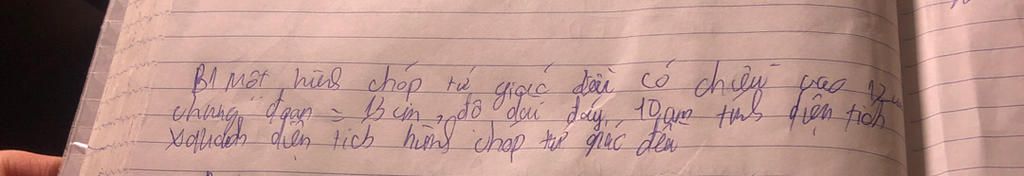 B1 Một hình chóp tứ giác đều có chiều cao 12 cm
trung đoạn = 13 cm, độ dài đáy 10 cm tính diện tích
xquanh diện tích hình chóp tứ giác đều